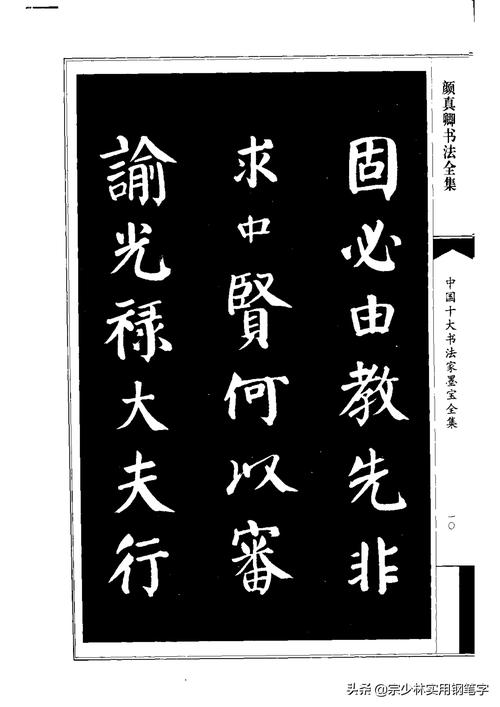 固必由教先非
求中賢何以審
諭光禄大夫行
颜真卿书法全集
中国十大书法家墨宝全集
一〇
头条@宗少林实用钢笔字